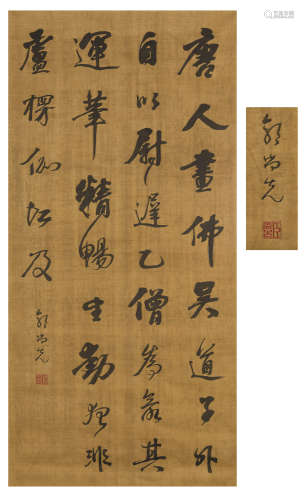 唐人畫佛吳道子外
自以尉遲乙僧為最其
運筆精暢生動猶非
盧楞伽所及
郭尚先
郭尚先